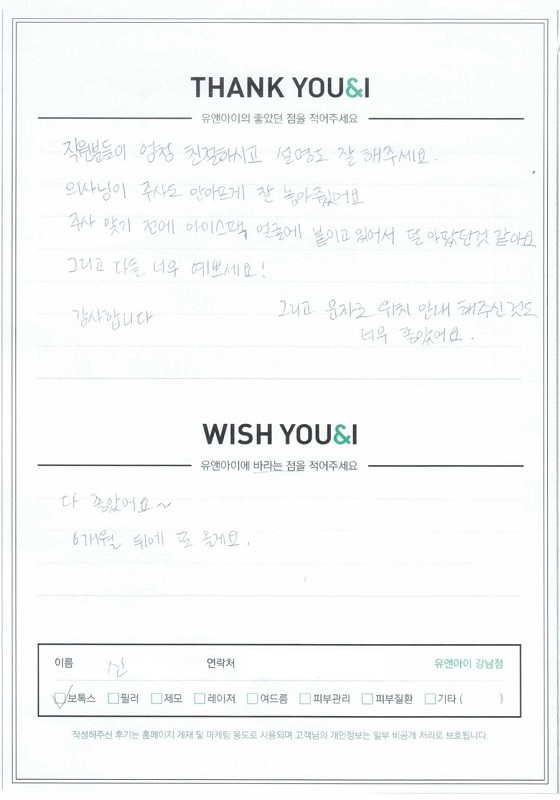 THANK YOU&I
유앤아이의 좋았던 점을 적어주세요
직원분들이 엄청 친절하시고 설명도 잘 해주세요.
의사님이 주사도 안아프게 잘 놓아주셨어요
주사 맞기 전에 아이스팩 얼굴에 붙이고 있어서 덜 아팠던것 같아요
그리고 다들 너무 예쁘세요!
감사합니다
그리고 문자로 위치 안내 해주신것도
너무 좋았어요.
WISH YOU&I
유앤아이에 바라는 점을 적어주세요
다 좋았어요~
6개월 뒤에 또 올게요.
이름 신 연락처 유앤아이 강남점
보톡스 필러 제모 레이저 여드름 피부관리 피부질환 기타 ( )
작성해주신 후기는 홈페이지 게재 및 마케팅 용도로 사용되며 고객님의 개인정보는 일부 비공개 처리로 보호됩니다.